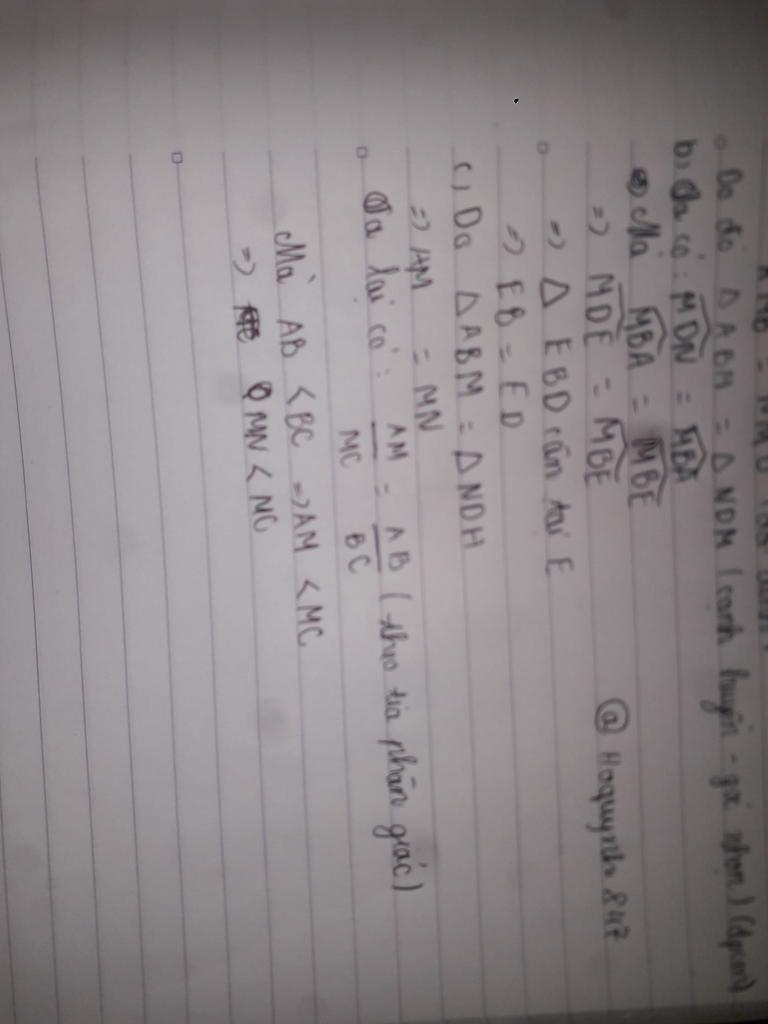 Do đó △ABM = △NDM (cạnh huyền - góc nhọn) (đpcm)
b, Ta có: MDN = MBA
Mà MBA = MBE
=> MDE = MBE
@ Hoquynh847
=> △ EBD cân tại E
=> EB = ED
c, Do △ABM = △NDM
=> AM = MN
Ta lại có: AM/MC = AB/BC (theo tia phân giác)
Mà AB < BC => AM < MC
=> MN < MC